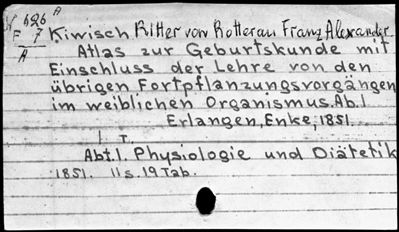 626 A
F 7 Kiwisch Ritter von Rotterau Franz Alexander
A Atlas zur Geburtskunde mit
Einschluss der Lehre von den
übrigen Fortpflanzungsvorgängen
im weiblichen Organismus. Ab. 1
Erlangen, Enke, 1851.
1 T.
Abt. 1. Physiologie und Diätetik
1851. 11 s. 19 Tab.